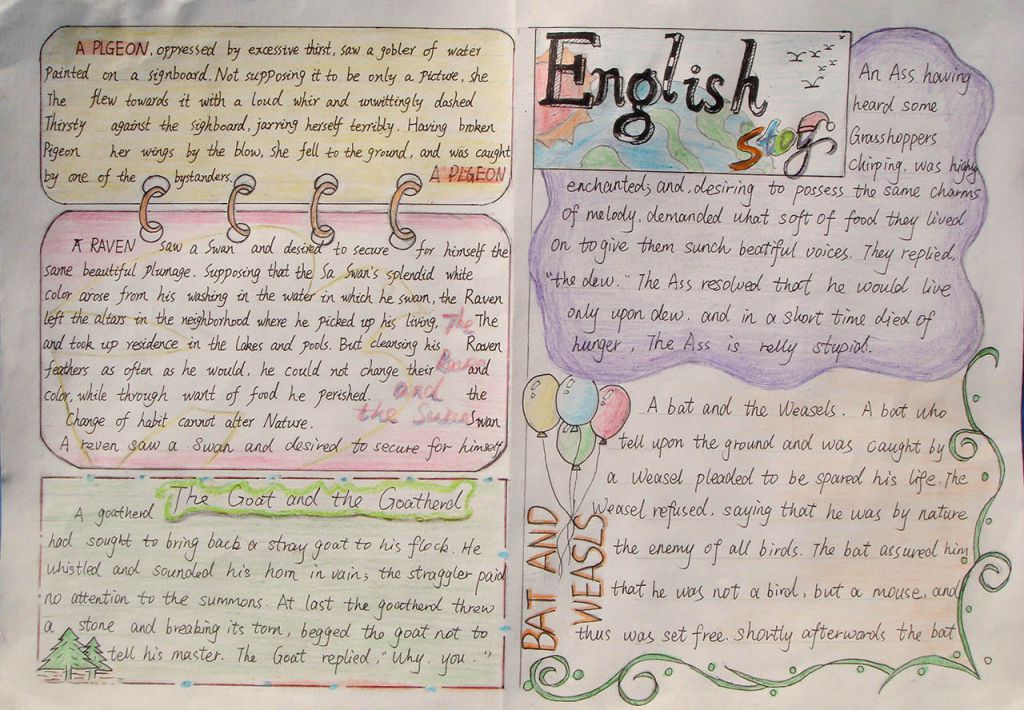 A PLGEON, oppressed by excessive thirst, saw a gobler of water
painted on a signboard. Not supposing it to be only a picture, she
The flew towards it with a loud whir and unwittingly dashed
Thirsty against the sighboard, jarring herself terribly. Having broken
Pigeon her wings by the blow, She fell to the ground, and was caught
by one of the bystanders. A PLGEON
A RAVEN saw a Swan and desired to secure for himself the
same beautiful plumage. Supposing that the Sa Swan's splendid white
color arose from his washing in the water in which he swam, the Raven
left the altars in the neighborhood where he picked up his living, The The
and took up residence in the lakes and pools. But cleansing his Raven
feathers as often as he would, he could not change their Raven and
color, while through want of food he perished. and the
Change of habit cannot alter Nature. the Swan Swan
A reven saw a Swan and desired to secure for himself
The Goat and the Goatherd
A goatherd
had sought to bring back a stray goat to his flock. He
whistled and sounded his horn in vain; the straggler paid
no attention to the summons. At last the goatherd threw
a stone and breaking its torn, begged the goat not to
tell his master. The Goat replied, "Why. you."
English
stoy
An Ass having
heard some
Grasshoppers
Chirping, was highy
enchanted; and, desiring to possess the same charms
of melody, demanded what soft of food they lived
on to give them sunch beatiful voices. They replied,
"the dew." The Ass resolved that he would live
only upon dew, and in a short time died of
hunger, The Ass is relly stupid.
BAT AND
WEASLS
A bat and the Weasels. A bat who
tell upon the ground and was caught by
a Weasel pleaded to be spared his life. The
Weasel refused, saying that he was by nature
the enemy of all birds. The bat assured him
that he was not a bird, but a mouse, and
thus was set free. Shortly afterwards the bat